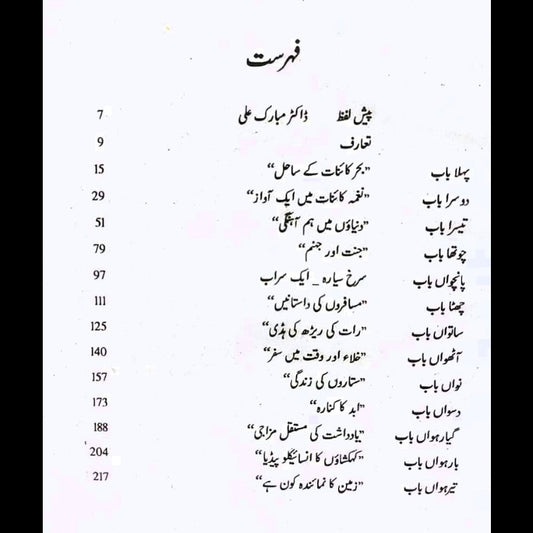 فہرست
پیش لفظ ڈاکٹر مبارک علی 7
تعارف 9
پہلا باب ”بحر کائنات کے ساحل“ 15
دوسرا باب ”نغمہ کائنات میں ایک آواز“ 29
تیسرا باب ”دنیاؤں میں ہم آہنگی“ 51
چوتھا باب ”جنت اور جہنم“ 79
پانچواں باب سرخ سیارہ _ ایک سراب 97
چھٹا باب ”مسافروں کی داستانیں“ 111
ساتواں باب ”رات کی ریڑھ کی ہڈی“ 125
آٹھواں باب ”خلاء اور وقت میں سفر“ 140
نواں باب ”ستاروں کی زندگی“ 157
دسواں باب ”ابد کا کنارہ“ 173
گیارہواں باب ”یادداشت کی مستقل مزاجی“ 188
بارہواں باب ”کہکشاؤں کا انسائیکلوپیڈیا“ 204
تیرہواں باب ”زمین کا نمائندہ کون ہے“ 217